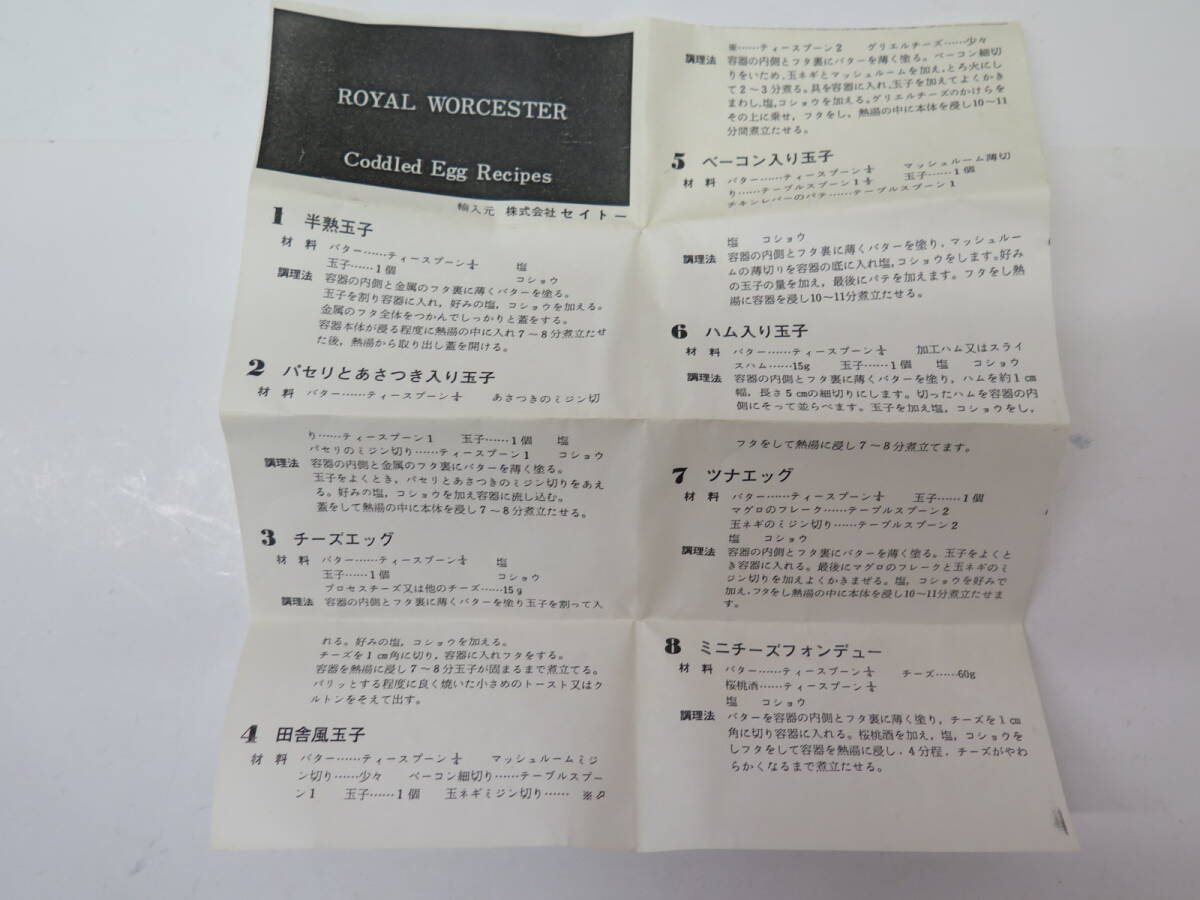 ROYAL WORCESTER
Coddled Egg Recipes
輸入元 株式会社 セイトー
1 半熟玉子
材 料 バター……ティースプーン 塩
玉子……1個 コショウ
調理法 容器の内側と金属のフタ裏に薄くバターを塗る。
玉子を割り容器に入れ,好みの塩,コショウを加える。
金属のフタ全体をつかんでしっかりと蓋をする。
容器本体が浸る程度に熱湯の中に入れ7〜8分煮立たせ
た後,熱湯から取り出し蓋を開ける。
2 パセリとあさつき入り玉子
材 料 バター……ティースプーン あさつきのミジン切
り……ティースプーン1 玉子……1個 塩
パセリのミジン切り……ティースプーン1 コショウ
調理法 容器の内側と金属のフタ裏にバターを薄く塗る。
玉子をよくとき,パセリとあさつきのミジン切りをあえ
る。好みの塩,コショウを加え容器に流し込む。
蓋をして熱湯の中に本体を浸し7〜8分煮立たせる。
3 チーズエッグ
材 料 バター……ティースプーン 塩
玉子……1個 コショウ
プロセスチーズ又は他のチーズ……15g
調理法 容器の内側とフタ裏に薄くバターを塗り玉子を割って入
れる。好みの塩,コショウを加える。
チーズを1㎝角に切り,容器に入れフタをする。
容器を熱湯に浸し7〜8分玉子が固まるまで煮立てる。
パリッとする程度に良く焼いた小さめのトースト又はク
ルトンをそえて出す。
4 田舎風玉子
材 料 バター……ティースプーン マッシュルームミジ
ン切り……少々 ベーコン細切り……テーブルスプー
ン1 玉子……1個 玉ネギミジン切り…… ※
※……ティースプーン2 グリエルチーズ……少々
調理法 容器の内側とフタ裏にバターを薄く塗る。ベーコン細切
りをいため,玉ネギとマッシュルームを加え,とろ火にし
て2〜3分煮る。具を容器に入れ,玉子を加えてよくかき
まわし,塩,コショウを加える。グリエルチーズのかけらを
その上に乗せ,フタをし,熱湯の中に本体を浸し10〜11
分間煮立たせる。
5 ベーコン入り玉子
材 料 バター……ティースプーン マッシュルーム薄切
り……テーブルスプーン1 玉子……1個
チキンレバーのパテ……テーブルスプーン1
塩 コショウ
調理法 容器の内側とフタ裏に薄くバターを塗り,マッシュルー
ムの薄切りを容器の底に入れ塩,コショウをします。好み
の玉子の量を加え,最後にパテを加えます。フタをし熱
湯に容器を浸し10〜11分煮立たせる。
6 ハム入り玉子
材 料 バター……ティースプーン 加工ハム又はスライ
スハム……15g 玉子……1個 塩 コショウ
調理法 容器の内側とフタ裏に薄くバターを塗り,ハムを約1㎝
幅,長さ5㎝の細切りにします。切ったハムを容器の内
側にそって並らべます。玉子を加え塩,コショウをし,
フタをして熱湯に浸し7〜8分煮立てます。
7 ツナエッグ
材 料 バター……ティースプーン 玉子……1個
マグロのフレーク……テーブルスプーン2
玉ネギのミジン切り……テーブルスプーン2
塩 コショウ
調理法 容器の内側とフタ裏にバターを薄く塗る。玉子をよくと
き容器に入れる。最後にマグロのフレークと玉ネギのミ
ジン切りを加えよくかきまぜる。塩,コショウを好みで
加え,フタをし熱湯の中に本体を浸し10〜11分煮立たせま
す。
8 ミニチーズフォンデュー
材 料 バター……ティースプーン チーズ……60g
桜桃酒……ティースプーン
塩 コショウ
調理法 バターを容器の内側とフタ裏に薄く塗り,チーズを1㎝
角に切り容器に入れる。桜桃酒を加え,塩,コショウを
しフタをして容器を熱湯に浸し,4分程,チーズがやわ
らかくなるまで煮立たせる。